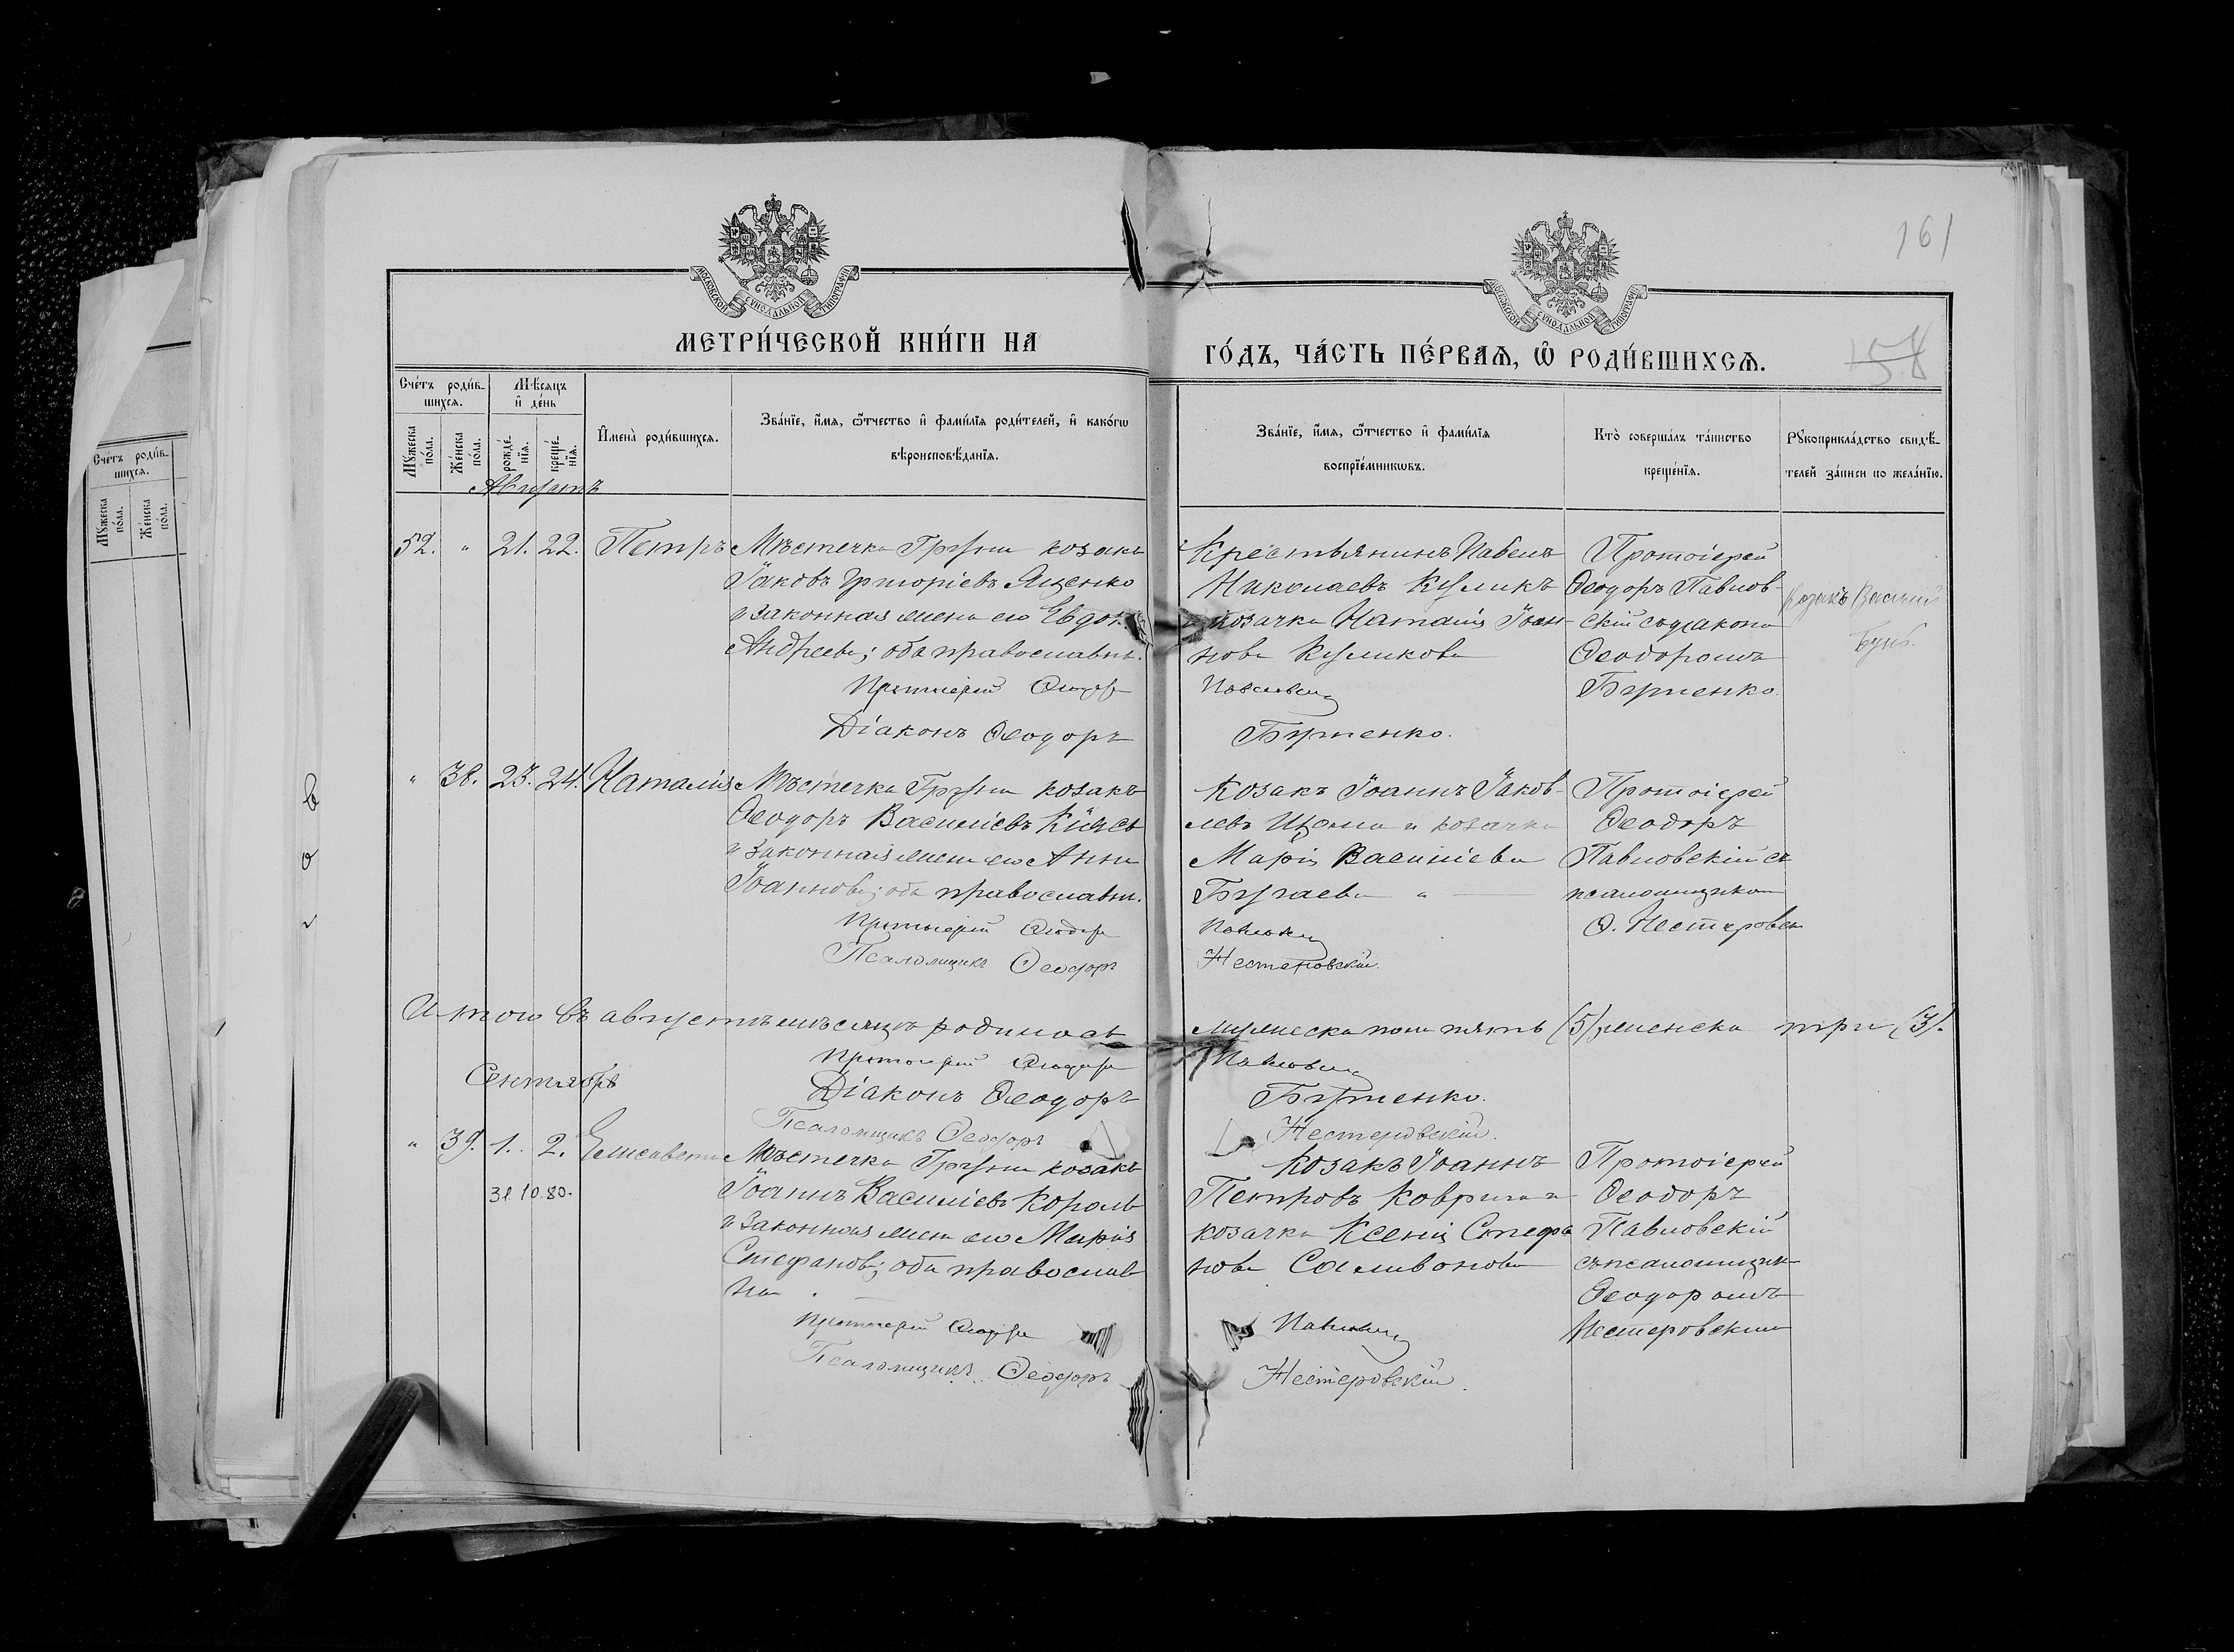 161
158
МОСКОВСКОЙ СѴНОДАЛЬНОЙ ТИПОГРАФІИ
МОСКОВСКОЙ СѴНОДАЛЬНОЙ ТИПОГРАФІИ
МЕТРИ́ЧЕСКОЙ КНИ́ГИ НА ГО́ДЪ, ЧА́СТЬ ПЕ́РВАѦ, Ѡ РОДИ́ВШИХСѦ.
Сче́тъ роди́вшихсѧ.
Мꙋ́жеска по́ла.
Же́нска по́ла.
Мѣ́сѧцъ и҆ де́нь
рожде́нїѧ.
креще́нїѧ.
И҆мена̀ роди́вшихсѧ.
Зва́нїе, и҆́мѧ, ѻ҆́тчество и҆ фами́лїѧ роди́телей, и҆ како́гѡ вѣроисповѣ́данїѧ.
Зва́нїе, и҆́мѧ, ѻ҆́тчество и҆ фами́лїѧ воспрїе́мникѡвъ.
Кто̀ соверша́лъ та́инство креще́нїѧ.
Рꙋкоприкла́дство свидѣ́телей за́писи по жела́нїю.
Августъ
52. " 21. 22. Петръ
Мѣстечка Груни козакъ
Іаковъ Григоріевъ Яценко
и законная жена его Евдок.
Андреева; оба православн.
Протоіерей Ѳеодоръ
Діаконъ Ѳеодоръ
Крестьянинъ Павелъ
Николаевъ Куликъ
козачка Наталія Іоан-
нова Куликова
Павловскій
Бутенко.
Протоіерей
Ѳеодоръ Павлов-
скій съ діакономъ
Ѳеодоромъ
Бутенко.
Козакъ Василий
" 38. 23. 24. Наталія
Мѣстечка Груни козакъ
Ѳеодоръ Василіевъ
и законная жена его Анна
Іоаннова; оба православн.
Протоіерей Ѳеодоръ
Псаломщикъ Ѳеодоръ
Козакъ Іоаннъ Іаков-
левъ и козачка
Марія Василіева
Бугаева "
Павловскій
Нестеровскій.
Протоіерей
Ѳеодоръ
Павловскій съ
псаломщикомъ
Ѳ. Нестеровск
Итого въ августѣ мѣсяцѣ родилось мужеска пола пять (5), женска три (3).
Протоіерей Ѳеодоръ Павловскій
Діаконъ Ѳеодоръ Бутенко.
Псаломщикъ Ѳеодоръ Нестеровскій.
Сентябрь
" 39. 1. 2. Елисавета
31.10.80.
Мѣстечка Груни козакъ
Іоаннъ Василіевъ Король
и законная жена его Марія
Стефанова; оба православ
ны.
Протоіерей Ѳеодоръ
Псаломщикъ Ѳеодоръ
Козакъ Іоаннъ
Петровъ Коврига и
козачка Ксенія Стефа
нова Саливонова
Павловскій
Нестеровскій.
Протоіерей
Ѳеодоръ
Павловскій
съ псаломщик
Ѳеодоромъ
Нестеровскимъ